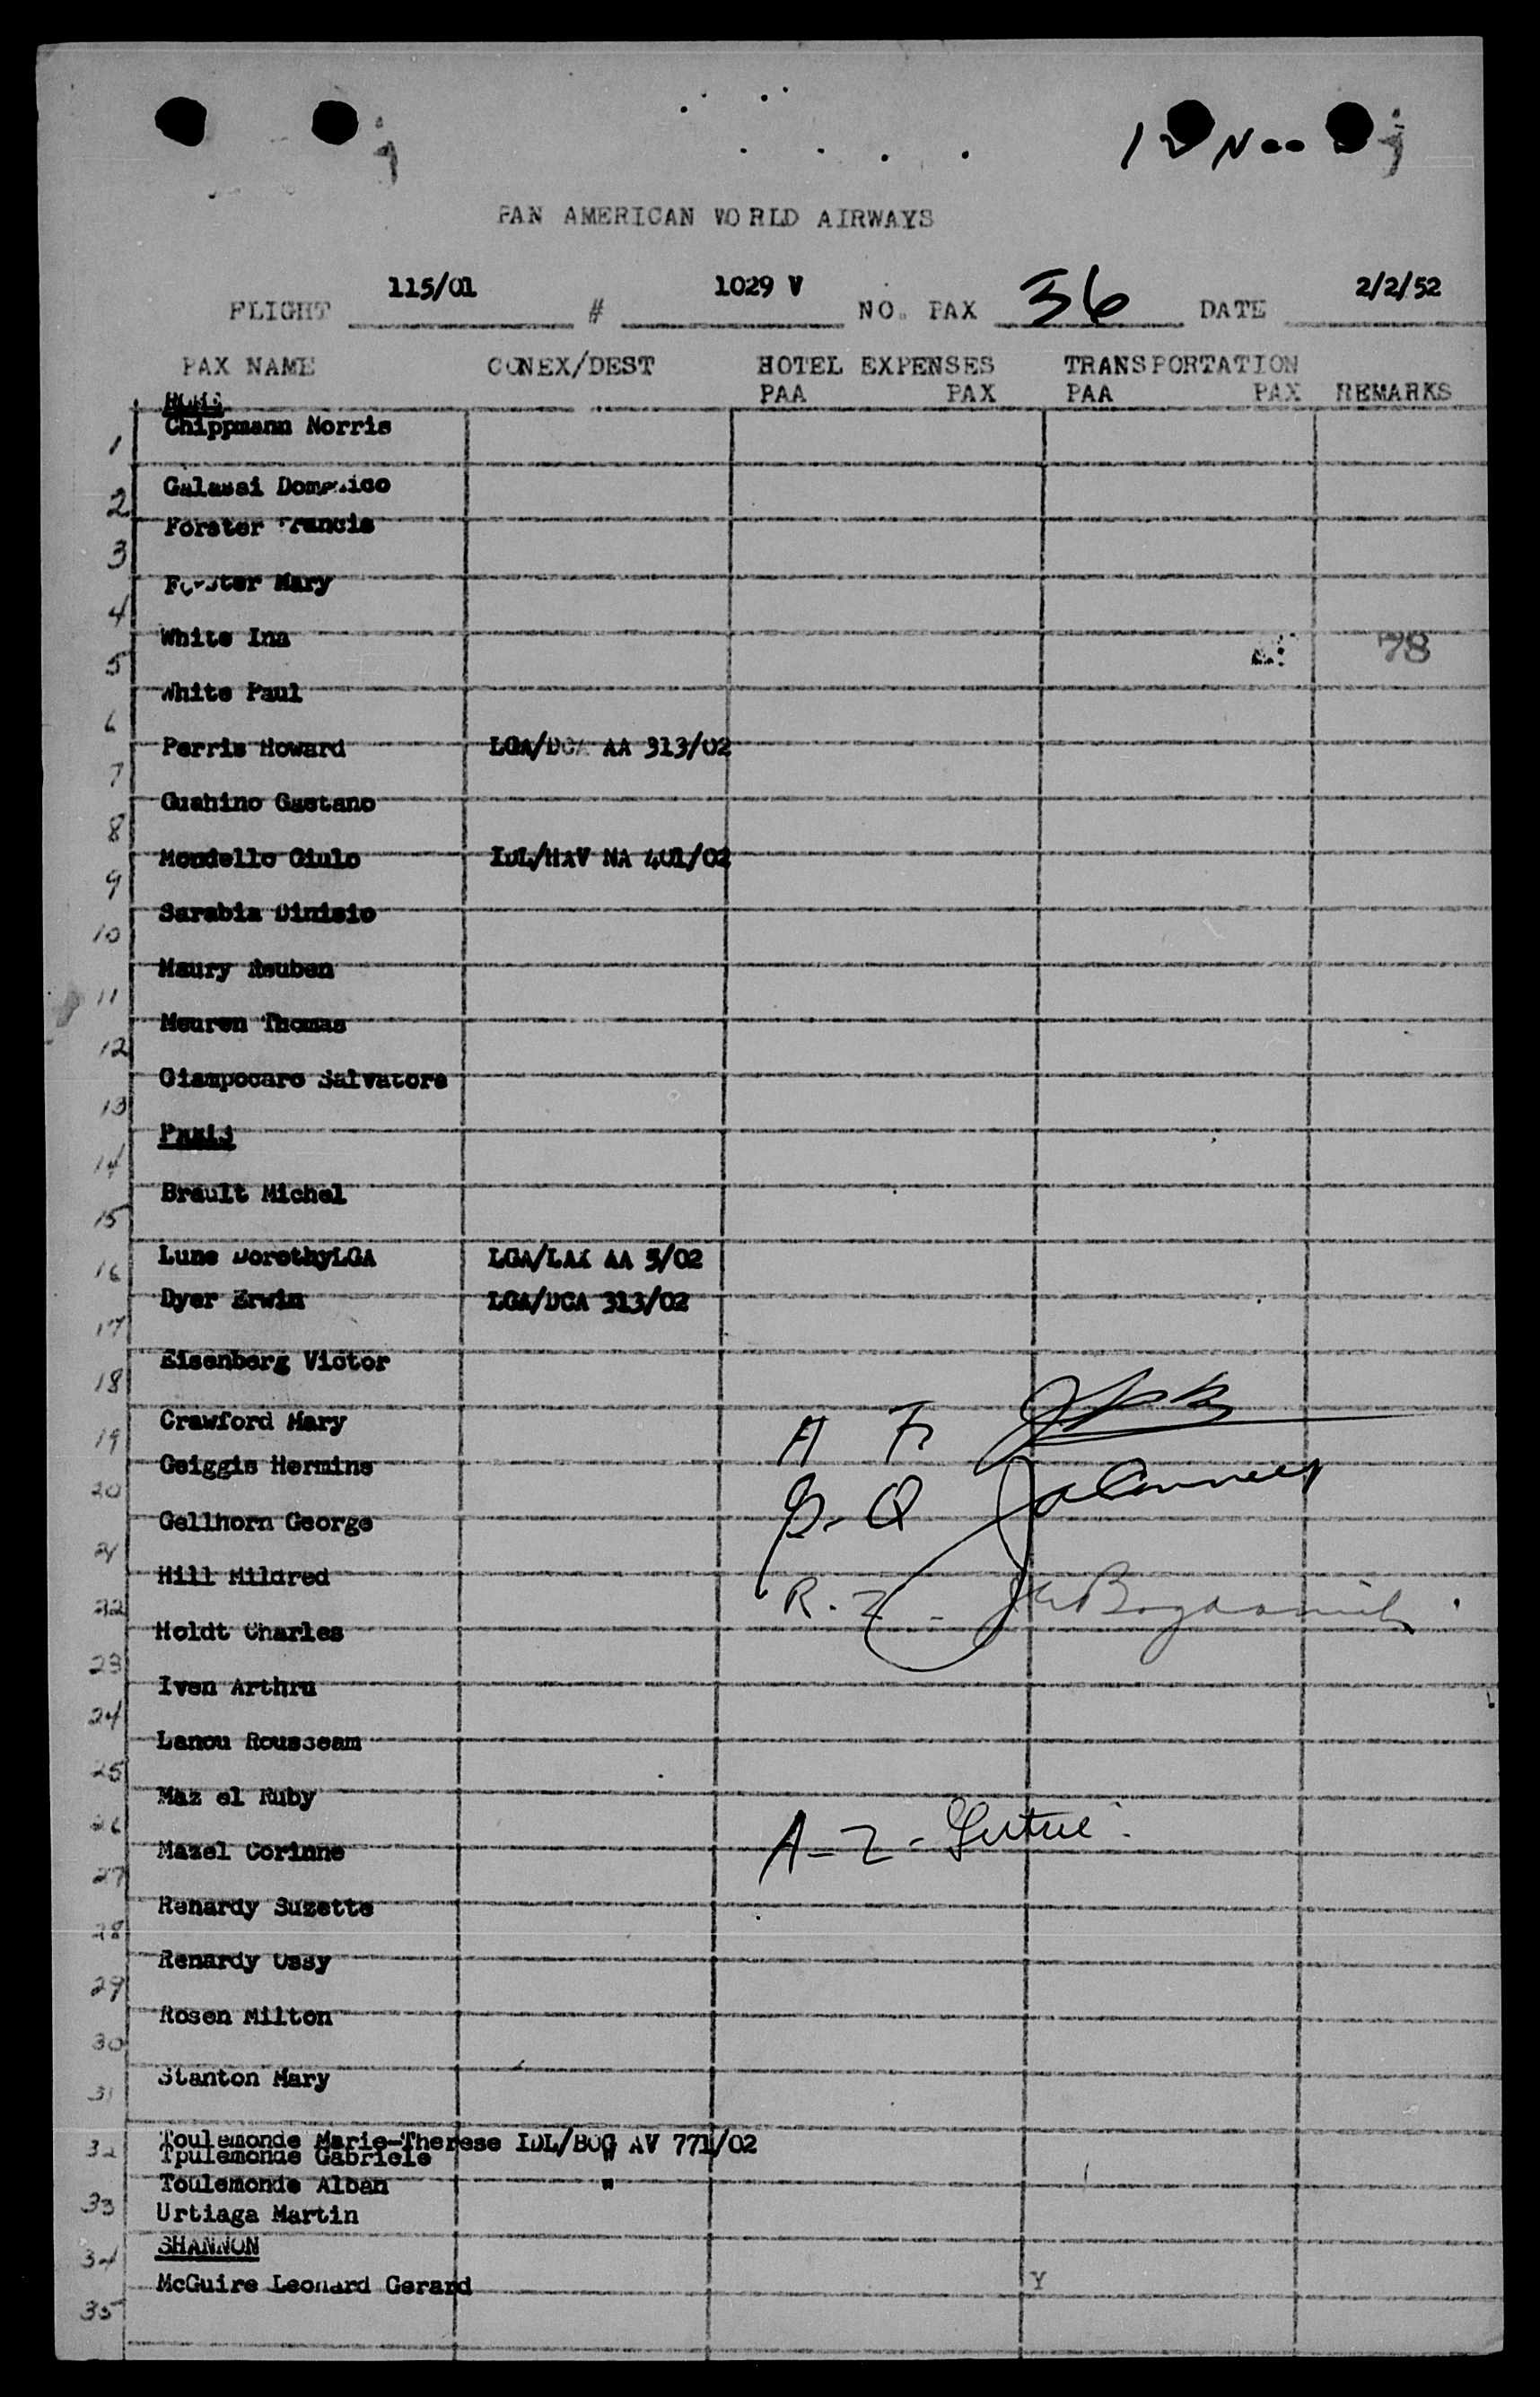 12 Noon
PAN AMERICAN WORLD AIRWAYS
FLIGHT 115/01 # 1029 V NO. PAX 36 DATE 2/2/52
PAX NAME CONEX/DEST HOTEL EXPENSES TRANSPORTATION
PAA PAX PAA PAX REMARKS
1 Chippmann Norris
2 Galassi Domenico
3 Forster Francis
4 Forster Mary
5 White Ina 78
6 White Paul
7 Perris Howard LGA/DCA AA 313/02
8 Gushino Gaetano
9 Mondello Giulo IDL/HAV NA 401/02
10 Sarabia Dinisio
11 Maury Reuben
12 Meuren Thomas
13 Giampocaro Salvatore
14 PARIS
15 Brault Michel
16 Lune DorothyLGA LGA/LAX AA 5/02
17 Dyer Erwin LGA/DCA 313/02
18 Eisenberg Victor
19 Crawford Mary A
20 Geiggis Hermine
21 Gellhorn George Q
22 Hill Mildred R. Z
23 Holdt Charles
24 Iven Arthru
25 Lanou Rousseam
26 Maz el Ruby
27 Mazel Corinne A-Z-
28 Renardy Suzette
29 Renardy Ossy
30 Rosen Milton
31 Stanton Mary
32 Toulemonde Marie-Therese IDL/BOG AV 771/02
Tpulemonde Gabriele "
33 Toulemonde Alban "
Urtiaga Martin
34 SHANNON
35 McGuire Leonard Gerard Y